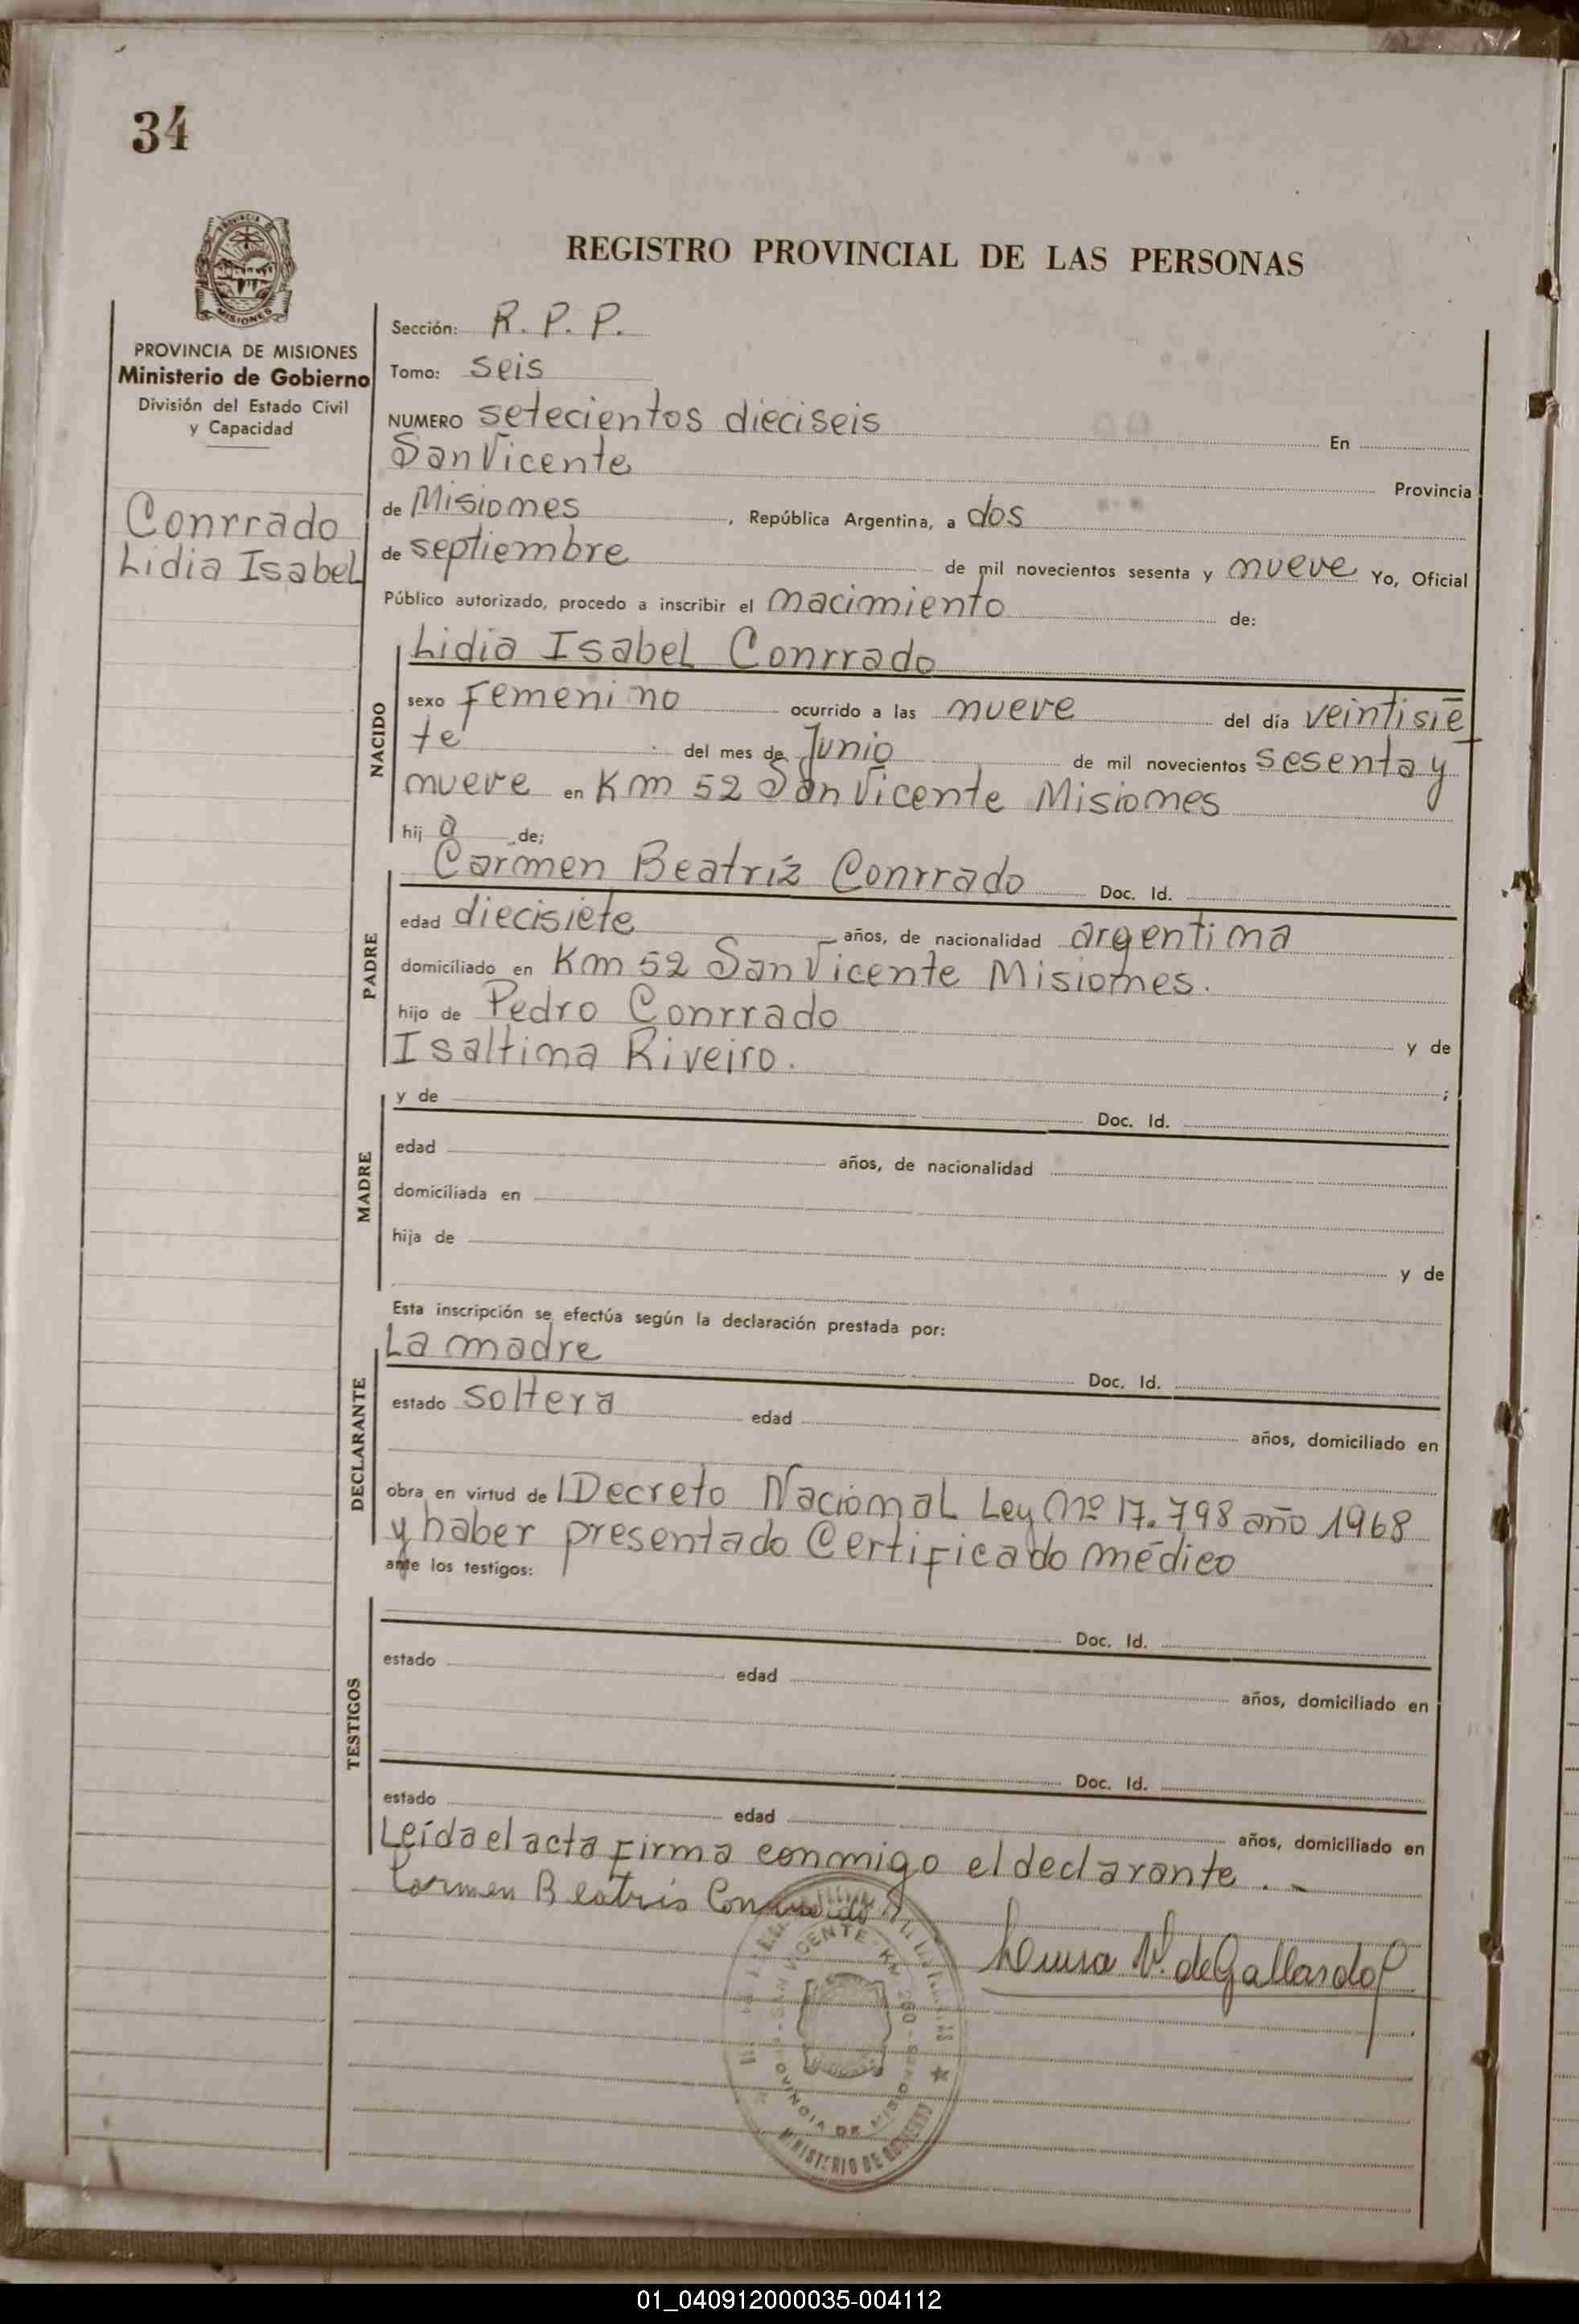 34
REGISTRO PROVINCIAL DE LAS PERSONAS
PROVINCIA
MISIONES
PROVINCIA DE MISIONES
Ministerio de Gobierno
División del Estado Civil
y Capacidad
Conrrado
Lidia Isabel
Sección: R. P. P.
Tomo: seis
NUMERO setecientos dieciseis En
San Vicente Provincia
de Misiones, República Argentina, a dos
de septiembre de mil novecientos sesenta y nueve Yo, Oficial
Público autorizado, procedo a inscribir el nacimiento de:
NACIDO
Lidia Isabel Conrrado
sexo Femenino ocurrido a las nueve del día veintisie
te del mes de Junio de mil novecientos sesenta y
nueve en Km 52 San Vicente Misiones
hij a de;
PADRE
Carmen Beatríz Conrrado Doc. Id.
edad diecisiete años, de nacionalidad argentina
domiciliado en Km 52 San Vicente Misiones.
hijo de Pedro Conrrado y de
Isaltina Riveiro. ;
MADRE
y de Doc. Id.
edad años, de nacionalidad
domiciliada en
hija de y de
Esta inscripción se efectúa según la declaración prestada por:
DECLARANTE
La madre Doc. Id.
estado soltera edad años, domiciliado en
obra en virtud de l Decreto Nacional Ley Nº 17.798 año 1968
y haber presentado Certificado médico
ante los testigos:
TESTIGOS
Doc. Id.
estado edad años, domiciliado en
Doc. Id.
estado edad años, domiciliado en
Leída el acta Firma conmigo el declarante . -
Carmen Beatris Conrrado
Luisa V. de Gallardo
SAN VICENTE - KM 260
PROVINCIA DE MISIONES
MINISTERIO DE GOBIERNO
01_040912000035-004112